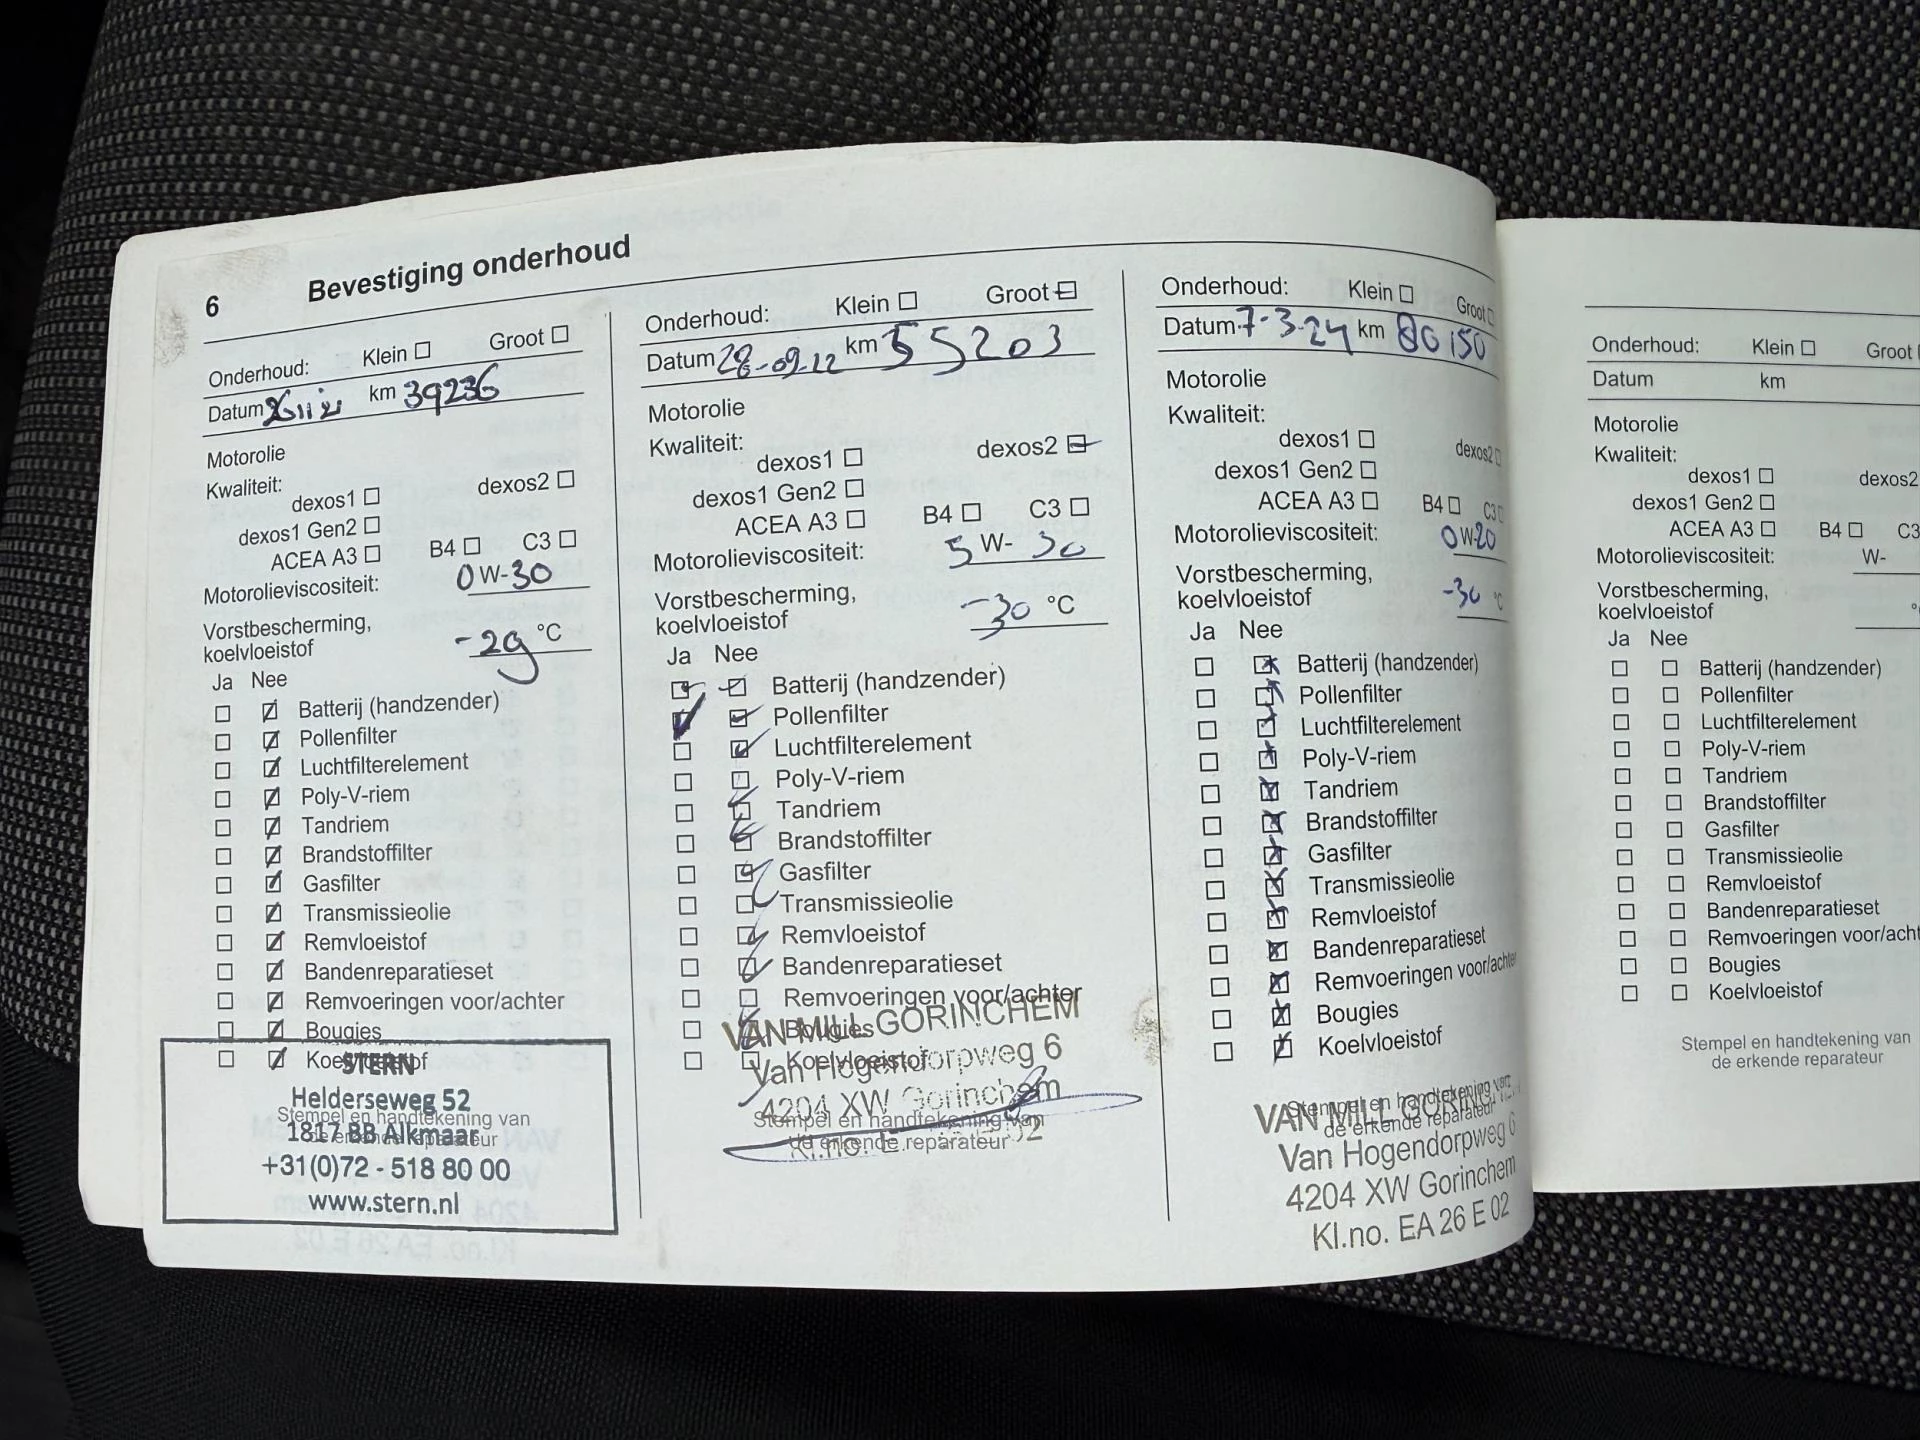 6 Bevestiging onderhoud
Onderhoud: Klein Groot
Datum km 39236
Motorolie
Kwaliteit:
dexos1 dexos2
dexos1 Gen2
ACEA A3 B4 C3
Motorolieviscositeit: 0 W-30
Vorstbescherming,
koelvloeistof -29 °C
Ja Nee
Batterij (handzender)
Pollenfilter
Luchtfilterelement
Poly-V-riem
Tandriem
Brandstoffilter
Gasfilter
Transmissieolie
Remvloeistof
Bandenreparatieset
Remvoeringen voor/achter
Bougies
Koelvloeistof
STERN
Helderseweg 52
Stempel en handtekening van
1817 BB Alkmaar
de erkende reparateur
+31(0)72 - 518 80 00
www.stern.nl
Onderhoud: Klein Groot
Datum 28-09-22 km 55203
Motorolie
Kwaliteit:
dexos1 dexos2
dexos1 Gen2
ACEA A3 B4 C3
Motorolieviscositeit: 5 W- 30
Vorstbescherming,
koelvloeistof -30 °C
Ja Nee
Batterij (handzender)
Pollenfilter
Luchtfilterelement
Poly-V-riem
Tandriem
Brandstoffilter
Gasfilter
Transmissieolie
Remvloeistof
Bandenreparatieset
Remvoeringen voor/achter
Bougies
Koelvloeistof
VAN MILL GORINCHEM
Van Hogendorpweg 6
4204 XW Gorinchem
Stempel en handtekening van
de erkende reparateur
Kl.no. E 02
Onderhoud: Klein Groot
Datum 7-3-24 km 80150
Motorolie
Kwaliteit:
dexos1 dexos2
dexos1 Gen2
ACEA A3 B4 C3
Motorolieviscositeit: 0 W-20
Vorstbescherming,
koelvloeistof -30 °C
Ja Nee
Batterij (handzender)
Pollenfilter
Luchtfilterelement
Poly-V-riem
Tandriem
Brandstoffilter
Gasfilter
Transmissieolie
Remvloeistof
Bandenreparatieset
Remvoeringen voor/achter
Bougies
Koelvloeistof
Stempel en handtekening van
de erkende reparateur
VAN MILL GORINCHEM
Van Hogendorpweg 6
4204 XW Gorinchem
Kl.no. EA 26 E 02
Onderhoud: Klein Groot
Datum km
Motorolie
Kwaliteit:
dexos1 dexos2
dexos1 Gen2
ACEA A3 B4 C3
Motorolieviscositeit: W-
Vorstbescherming,
koelvloeistof °
Ja Nee
Batterij (handzender)
Pollenfilter
Luchtfilterelement
Poly-V-riem
Tandriem
Brandstoffilter
Gasfilter
Transmissieolie
Remvloeistof
Bandenreparatieset
Remvoeringen voor/acht
Bougies
Koelvloeistof
Stempel en handtekening van
de erkende reparateur